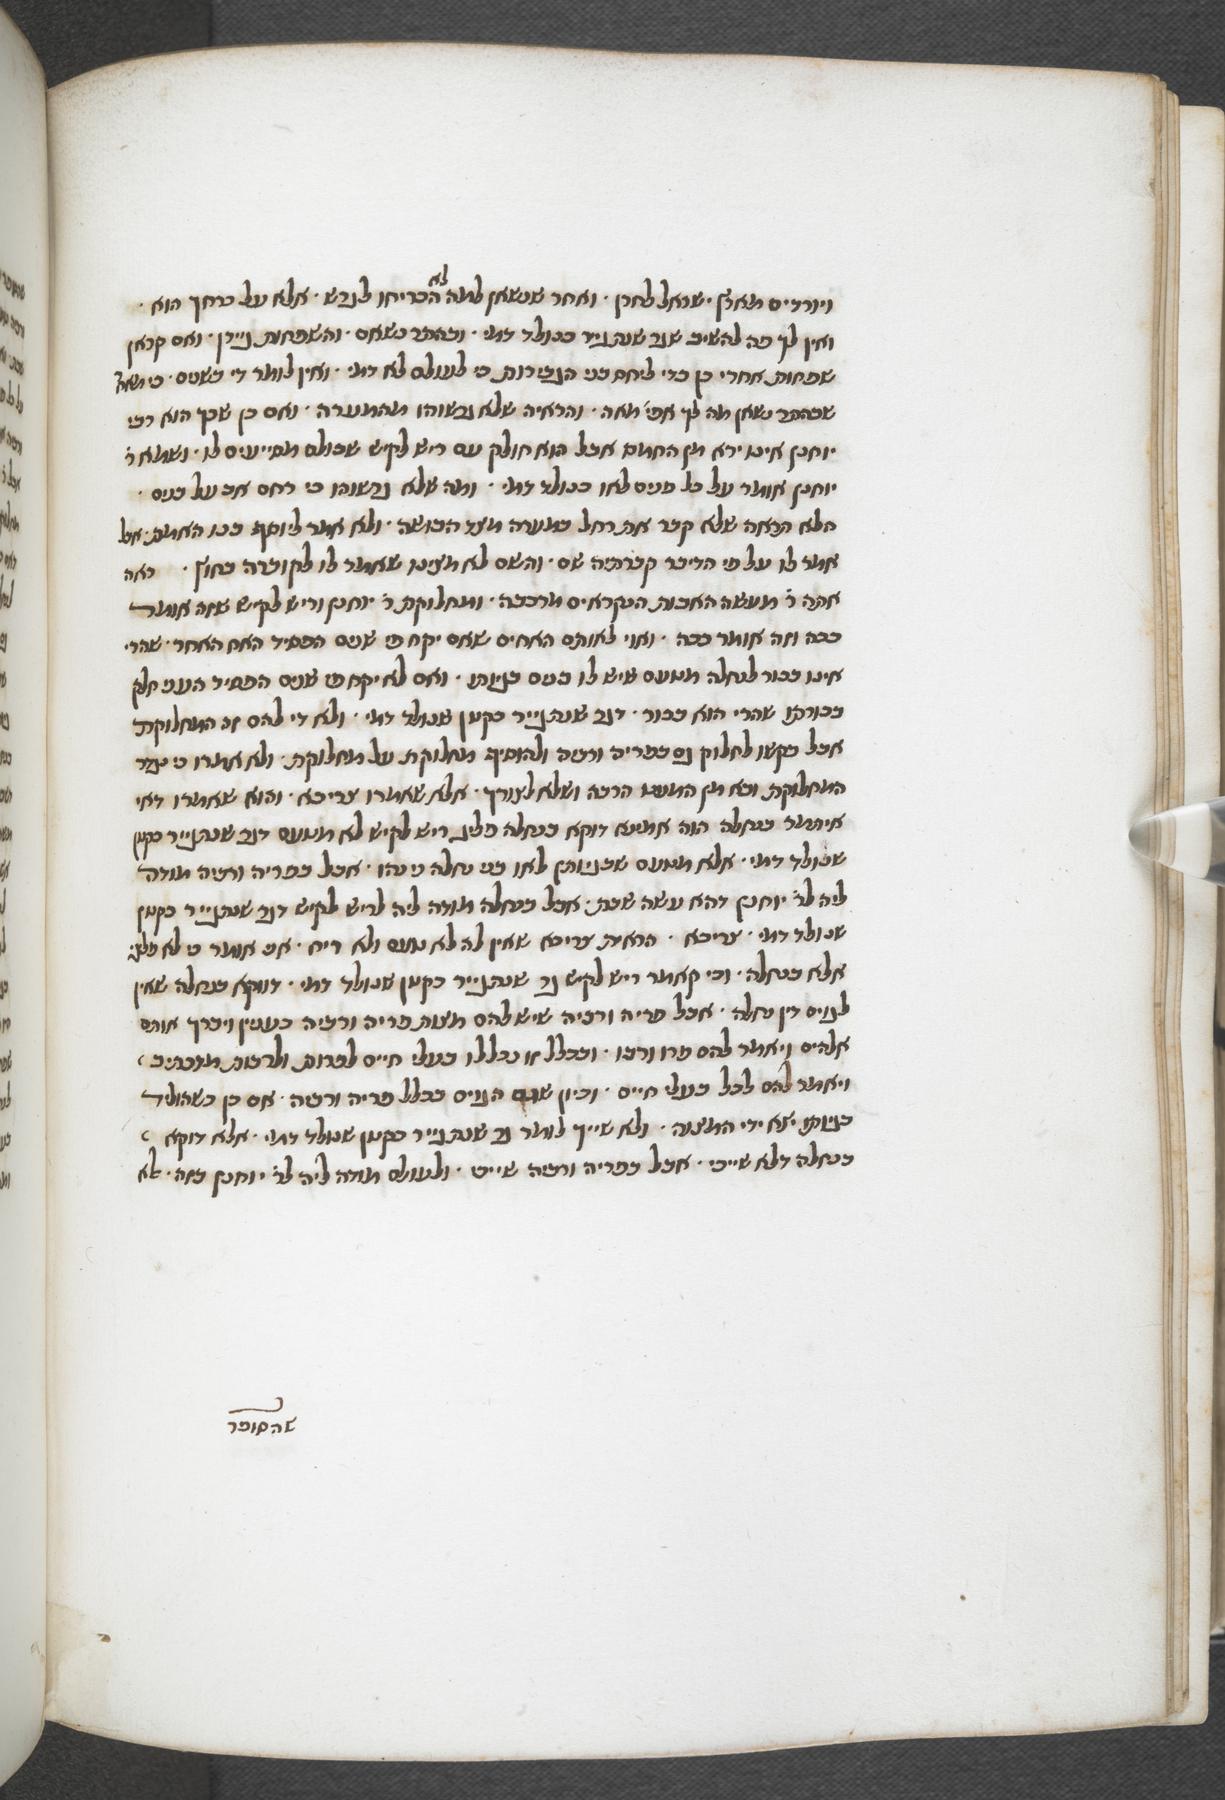 ויורדים מארץ ישראל לחרן · ואחר שנשאן למה לא הכריחו לגרש · אלא על כרחך הוא ·
ואין לך פה להשיב שגר שנתגייר כנולד דמי · ובהתר נשאם · והשפחות גיירן · ואם קראן
שפחות אחרי כן כדי ליחם בני הגבירות כי לעולם לא דמי · ואין לומר די בשנים · כי
שבהתר נשאן מה לך אפי' מאה · והראיה שלא גרשוהו מהמערה · ואם כן שכך הוא רבי
יוחנן אינו ירא מן החמם אבל הוא חולק עם ריש לקיש שכולם מסייעים לו · ושמא ר'
יוחנן אומר על כל פנים לאו כנולד דמי · ומה שלא גרשוהו כי רחם אב על בנים ·
הלא תראה שלא קבר את רחל במערה מצד הבושה · ולא אמר ליוסף בנו האמת · אבל
אמר לו על פי הדיבר קברתיה שם · והשם לא מצינו שאמר לו לקוברה בחוץ · ראה
אתה ר' מעשה האבות הנקראים מרכבה · ומחלוקת ר' יוחנן וריש לקיש שזה אומר
ככה וזה אומר ככה · ואוי לאותם האחים שאם יקח פי שנים הפסיד האח האחר · שהרי
אינו בכור לנחלה מטעם שיש לו בנים בגיותו · ואם לא יקח פי שנים הפסיד העני חלק
בכורתו שהרי הוא בכור · דגר שנתגייר כקטן שנולד דמי · ולא די להם זה המחלוקת
אבל בקשו לחלוק גם בפריה ורביה ולהוסיף מחלוקת על מחלוקת · ולא אמרו כי
המחלוקת ובא מן המעט הרבה ושלא לצורך · אלא שאמרו צריכא · והוא שאמרו דאי
איתמר בנחלה הוה אמינא דוקא בנחלה פליג ריש לקיש לא מטעם דגר שנתגייר כקטן
שנולד דמי · אלא מטעם שבגיותן לאו בני נחלה נינהו · אבל בפריה ורביה מודה
ליה לר' יוחנן דהא עשה שבת · אבל בנחלה מודה ליה לריש לקיש דגר שנתגייר כקטן
שנולד דמי · צריכא · הראית צריכא שאין לה לא טעם ולא ריח · אם אומר כי לא פליגי
אלא בנחלה · וכי קאמר ריש לקיש גר שנתגייר כקטן שנולד דמי · דווקא בנחלה שאין
לגוים דין נחלה · אבל פריה ורביה שיש להם מצות פריה ורביה כענין ויברך אותם
אלהים ויאמר להם פרו ורבו · ובכלל זו נכללו בעלי חיים לפרות ולרבות מדכתיב
ויאמר להם לכל בעלי חיים · וכיון שגם הגוים בכלל פריה ורביה · אם כן כשהוליד
בגיותו יצא ידי המצוה · ולא שייך לומר גר שנתגייר כקטן שנולד דמי · אלא דוקא
בנחלה דלא שייכי · אבל בפריה ורביה שייכי · ולעולם מודה ליה לר' יוחנן בזה · לא
שהסופר